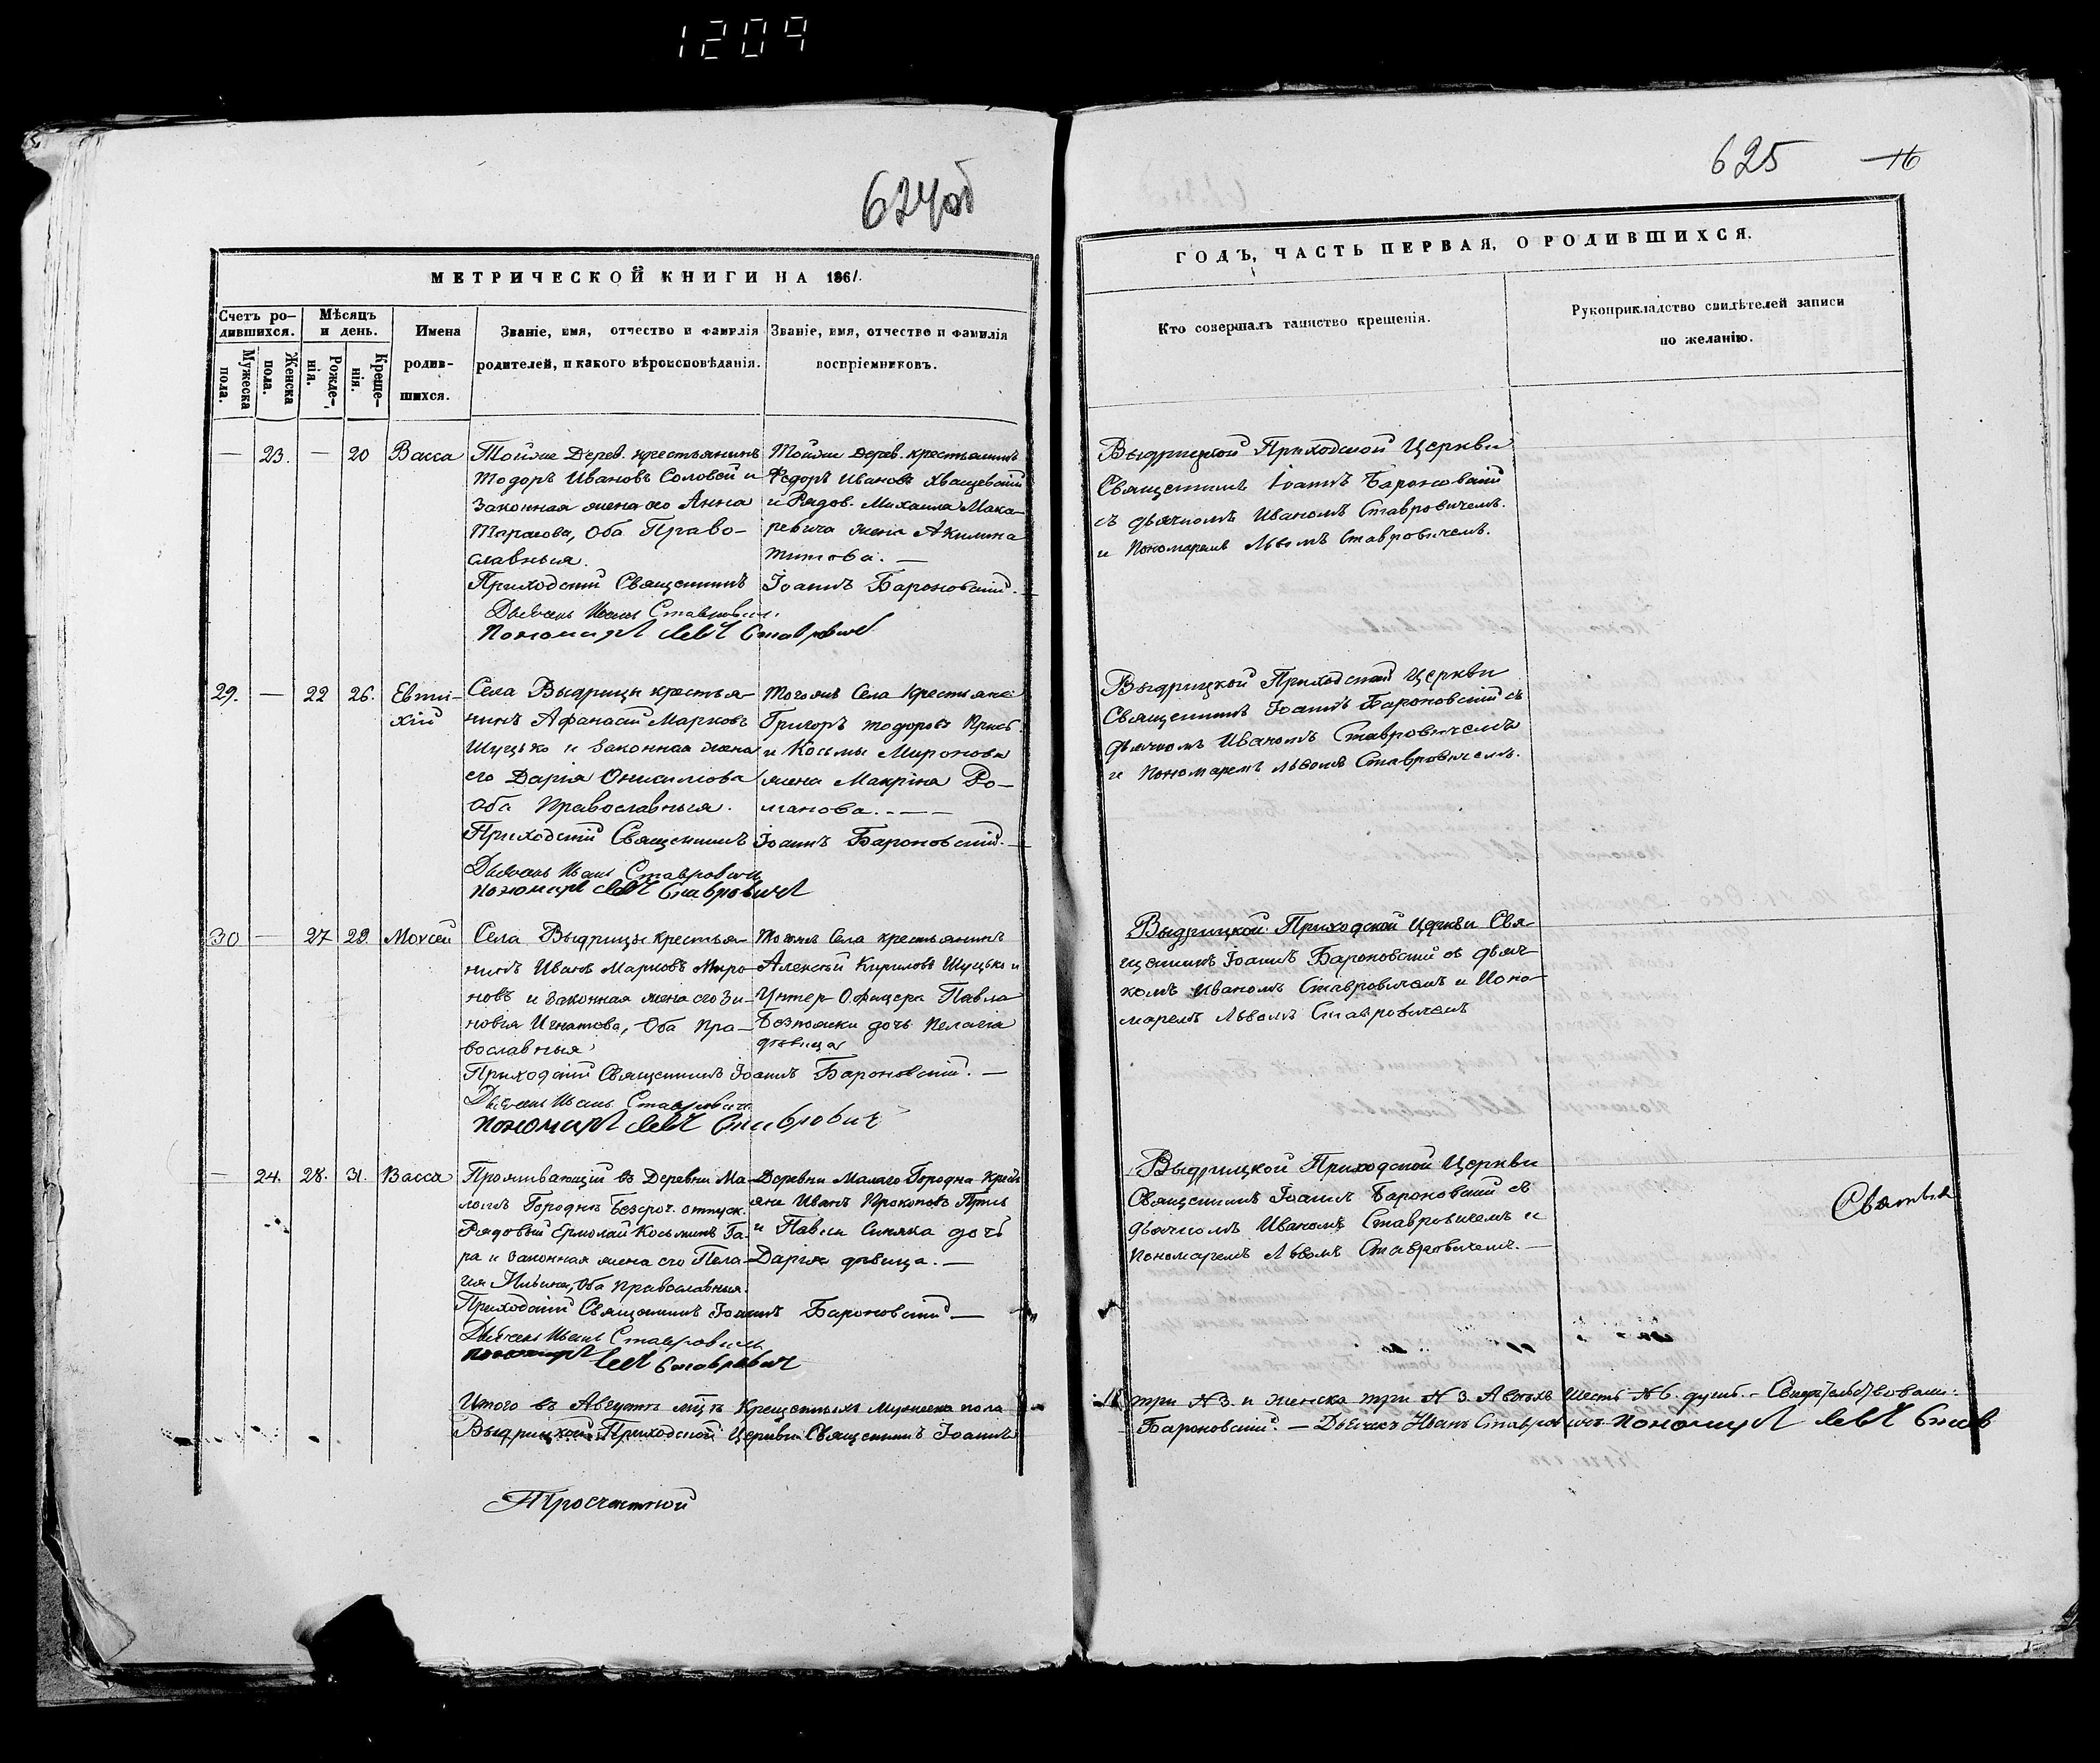 1209
624об
МЕТРИЧЕСКОЙ КНИГИ НА 1861.
Счетъ ро-
дившихся.
Мужеска
пола.
Женска
пола.
Мѣсяцъ
и день.
Рожде-
нія.
Креще-
нія.
Имена
родив-
шихся.
Званіе, имя, отчество и фамилія
родителей, и какого вѣроисповѣданія.
Званіе, имя, отчество и фамилія
воспріемниковъ.
— 23. — 20 Васса
Тойже Дерев. крестьянинъ
Тодоръ Ивановъ Соловей и
законная жена его Анна
Тарасова, Оба Право-
славныя.
Тойже дерев. крестьянинъ
Ѳедоръ Ивановъ Хващевскій
и Рядов. Михаила Мака-
ревича жена Акилина
Титова. —
Приходскій Священникъ Іоаннъ Бароновскій. —
Дьячекъ Иванъ Ставровичъ
Пономарь Левъ Ставровичъ
29. — 22 26. Евти-
хій
Села Выдрицы крестья-
нинъ Афанасій Марковъ
Шуцько и законная жена
его Дарія Онисимова
Оба Православныя.
Тогожъ Села Крестьяне
Григоръ Тодоровъ
и Косьмы Миронова
жена Макрина Ро-
манова. — —
Приходскій Священникъ Іоаннъ Бароновскій. —
Дьячекъ Иванъ Ставровичъ
Пономарь Левъ Ставровичъ
30 — 27 29 Моѵсей
Села Выдрицы крестья-
нинъ Иванъ Марковъ Миро-
новъ и законная жена его Зи-
новія Игнатова, Оба Пра-
вославныя
Тогожъ Села крестьянинъ
Алексѣй Кириловъ Шуцько и
Унтер-Офицера Павла
дочь Пелагія
дѣвица
Приходскій Священникъ Іоаннъ Бароновскій. —
Дьячекъ Иванъ Ставровичъ
Пономарь Левъ Ставровичъ
— 24. 28. 31. Васса
Проживающій въ Деревни Ма-
ломъ Городнѣ Безсроч. отпуск.
Рядовый Ермолай Косьминъ Га-
ра и законная жена его Пела-
гія Ильина, Оба Православныя.
Деревни Малаго Городна Крест
яне Иванъ Прокоповъ
и Павла Синяка дочь
Дарія дѣвица. —
Приходскій Священникъ Іоаннъ Бароновскій —
Дьячекъ Иванъ Ставровичъ
Пономарь Левъ Ставровичъ
Итого въ Августѣ мцѣ Крещенныхъ Мужеска пола
Выдрицкой Приходской Церкви Священникъ Іоаннъ
625 16
ГОДЪ, ЧАСТЬ ПЕРВАЯ, О РОДИВШИХСЯ.
Кто совершалъ таинство крещенія.
Рукоприкладство свидѣтелей записи
по желанію.
Выдрицкой Приходской Церкви
Священникъ Іоаннъ Бароновскій
съ дьячкомъ Иваномъ Ставровичемъ.
и Пономаремъ Львомъ Ставровичемъ.
Выдрицкой Приходской Церкви
Священникъ Іоаннъ Бароновскій съ
дьячкомъ Иваномъ Ставровичемъ
и Пономаремъ Львомъ Ставровичемъ.
Выдрицкой Приходской Церкви Свя-
щенникъ Іоаннъ Бароновскій съ дьяч-
комъ Иваномъ Ставровичемъ и Поно-
маремъ Львомъ Ставровичемъ
Выдрицкой Приходской Церкви
Священникъ Іоаннъ Бароновскій съ
дьячкомъ Иваномъ Ставровичемъ и
Пономаремъ Львомъ Ставровичемъ. —
три №3. и женска три №3. А всѣхъ Шесть №6. душъ. — Свидѣтельствовали:
Бароновскій. — Дьячекъ Иванъ Ставровичъ Пономарь Левъ Став
Просчетной